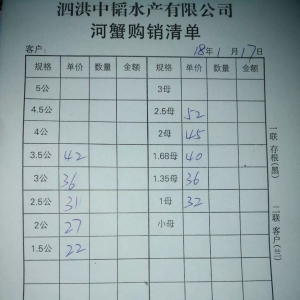 泗洪中韬水产有限公司
河蟹购销清单
客户： 18年1月17日
规格 单价 数量 金额 规格 单价 数量 金额
5公 3母
4.5公 2.5母 52
4公 2母 45
3.5公 42 1.68母 40
3公 36 1.35母 36
2.5公 31 1母 32
2公 27 小母
1.5公 22
一联 存根(黑)
二联 客户(兰)